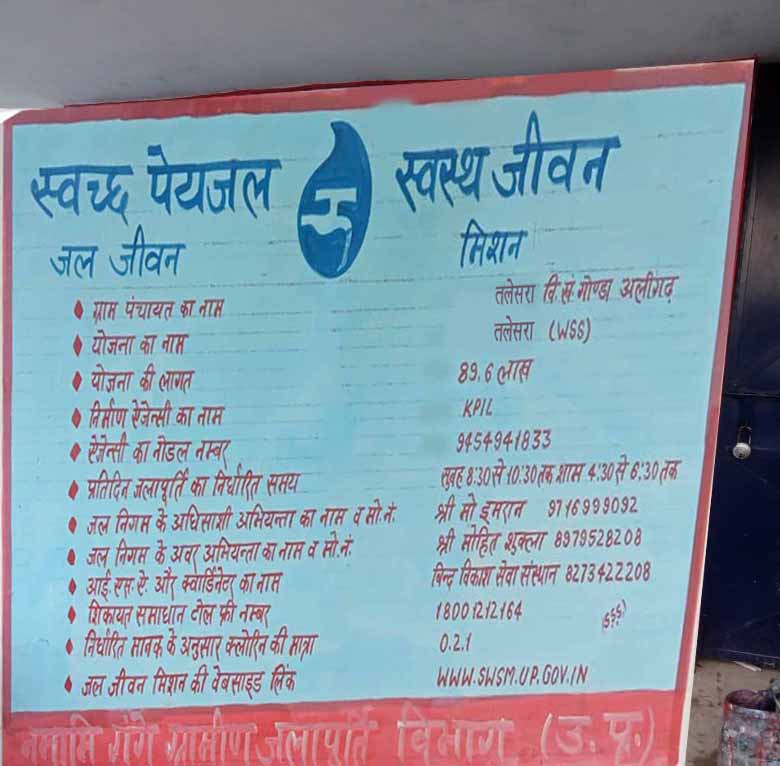 स्वच्छ पेयजल स्वस्थ जीवन
जल जीवन मिशन
ग्राम पंचायत का नाम तलेसरा वि.खं. गोण्डा अलीगढ़
योजना का नाम तलेसरा (WSS)
योजना की लागत 89.6 लाख
निर्माण ऐजेन्सी का नाम KPIL
ऐजेन्सी का नोडल नम्बर 9454941833
प्रतिदिन जलापूर्ति का निर्धारित समय सुबह 8:30 से 10:30 तक शाम 4:30 से 6:30 तक
जल निगम के अधिसाशी अभियन्ता का नाम व मो.नं. श्री मो इमरान 9716999092
जल निगम के अवर अभियन्ता का नाम व मो.नं. श्री मोहित शुक्ला 8979528208
आई.एस.ऐ. और क्वार्डिनेटर का नाम बिन्द विकाश सेवा संस्थान 8273422208
शिकायत समाधान टोल फ्री नम्बर 18001212164
निर्धारित मानक के अनुसार क्लोरिन की मात्रा 0.2.1
जल जीवन मिशन की वेबसाइड लिंक WWW.SWSM.UP.GOV.IN
नमामि गंगे ग्रामीण जलापूर्ति विभाग (उ.प्र.)